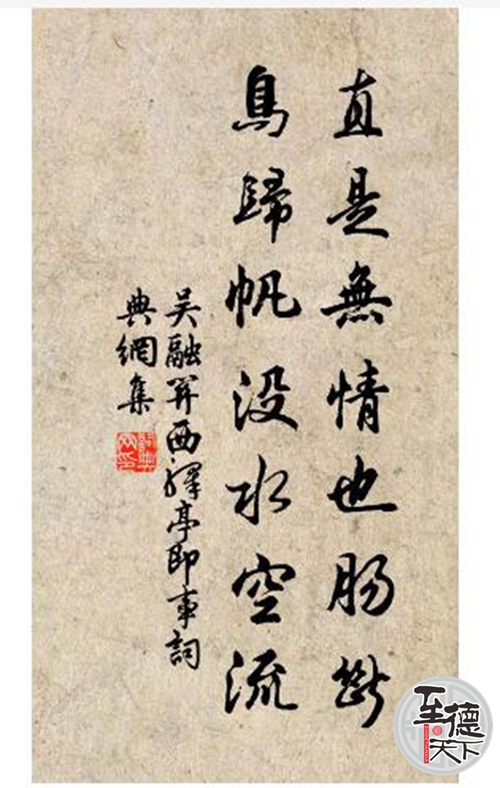 直是無情也肠斷
鳥歸帆没水空流
吴融關西驛亭即事詞
典網集
至德
天下